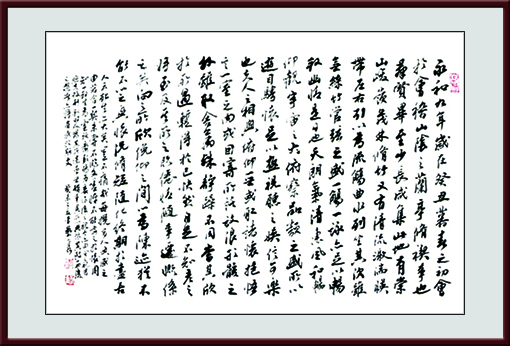 永和九年歲在癸丑暮春之初會
於會稽山陰之蘭亭脩稧事也
羣賢畢至少長咸集此地有崇
山峻嶺茂林脩竹又有清流激湍映
帶左右引以為流觴曲水列坐其次雖
無絲竹管弦之盛一觴一詠亦足以暢
敘幽情是日也天朗氣清惠風和暢
仰觀宇宙之大俯察品類之盛所以
遊目騁懷足以極視聽之娛信可樂
也夫人之相與俯仰一世或取諸懷抱悟
言一室之內或因寄所託放浪形骸之
外雖趣舍萬殊靜躁不同當其欣
於所遇暫得於己快然自足不知老之
將至及其所之既惓情隨事遷感慨係
之矣向之所欣俛仰之間以為陳迹猶不
能不以之興懷況脩短隨化終期於盡古
人云死生亦大矣豈不痛哉每攬昔人興感之